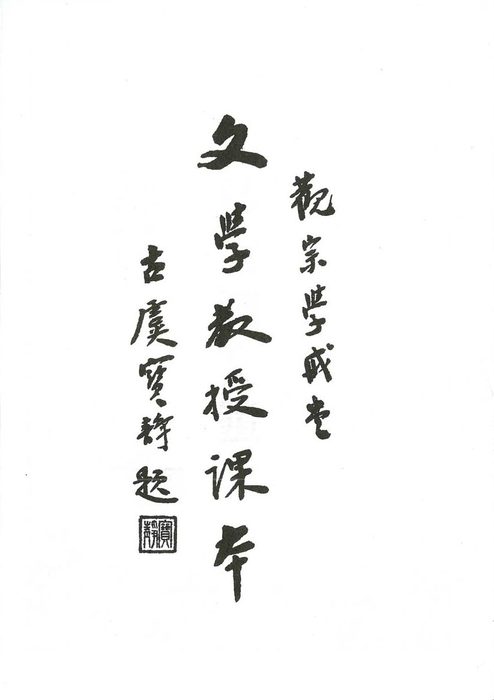 觀宗學戒堂
文學教授課本
古虞寶靜題
寶靜